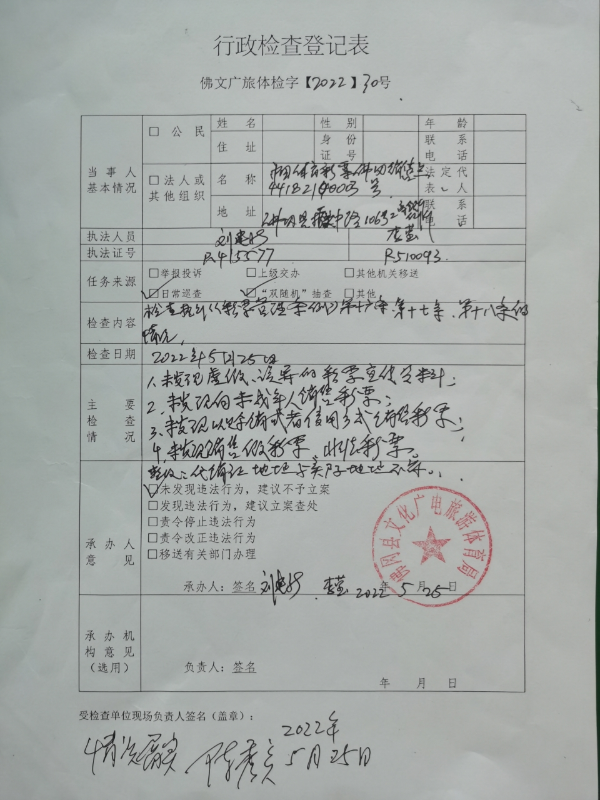 行政检查登记表
佛文广旅体检字【2022】30号
当事人
基本情况
□ 公 民
姓 名
性 别
年 龄
住 址
身 份
证 号
联 系
电 话
□ 法人或
其他组织
名 称
体育彩票
销售点
法定代
表 人
地 址
中路106号
联 系
电 话
执法人员
刘
李莹
执法证号
R415577
R510093
任务来源
□举报投诉 □上级交办 □其他机关移送
☑日常巡查 ☑“双随机”抽查 □其他
检查内容
检查执行《彩票管理条例》第十六条、第十七条、第十八条的
情况
检查日期
2022年5月25日
主 要
检查
情况
1、未发现虚假、误导的彩票宣传资料；
2、未发现向未成年人销售彩票；
3、未发现以赊销或者信用方式销售彩票；
4、未发现销售假彩票、非法彩票。
代销证地址与实际地址不符。
承 办 人
意 见
☑未发现违法行为，建议不予立案
□发现违法行为，建议立案查处
□责令停止违法行为
□责令改正违法行为
□移送有关部门办理
承办人：签名 刘 李莹 2022年5月25日
佛冈县文化广电旅游体育局
承 办 机
构 意 见
（选用）
负责人：签名
年 月 日
受检查单位现场负责人签名（盖章）：
情况属实 陈 2022年
5月25日